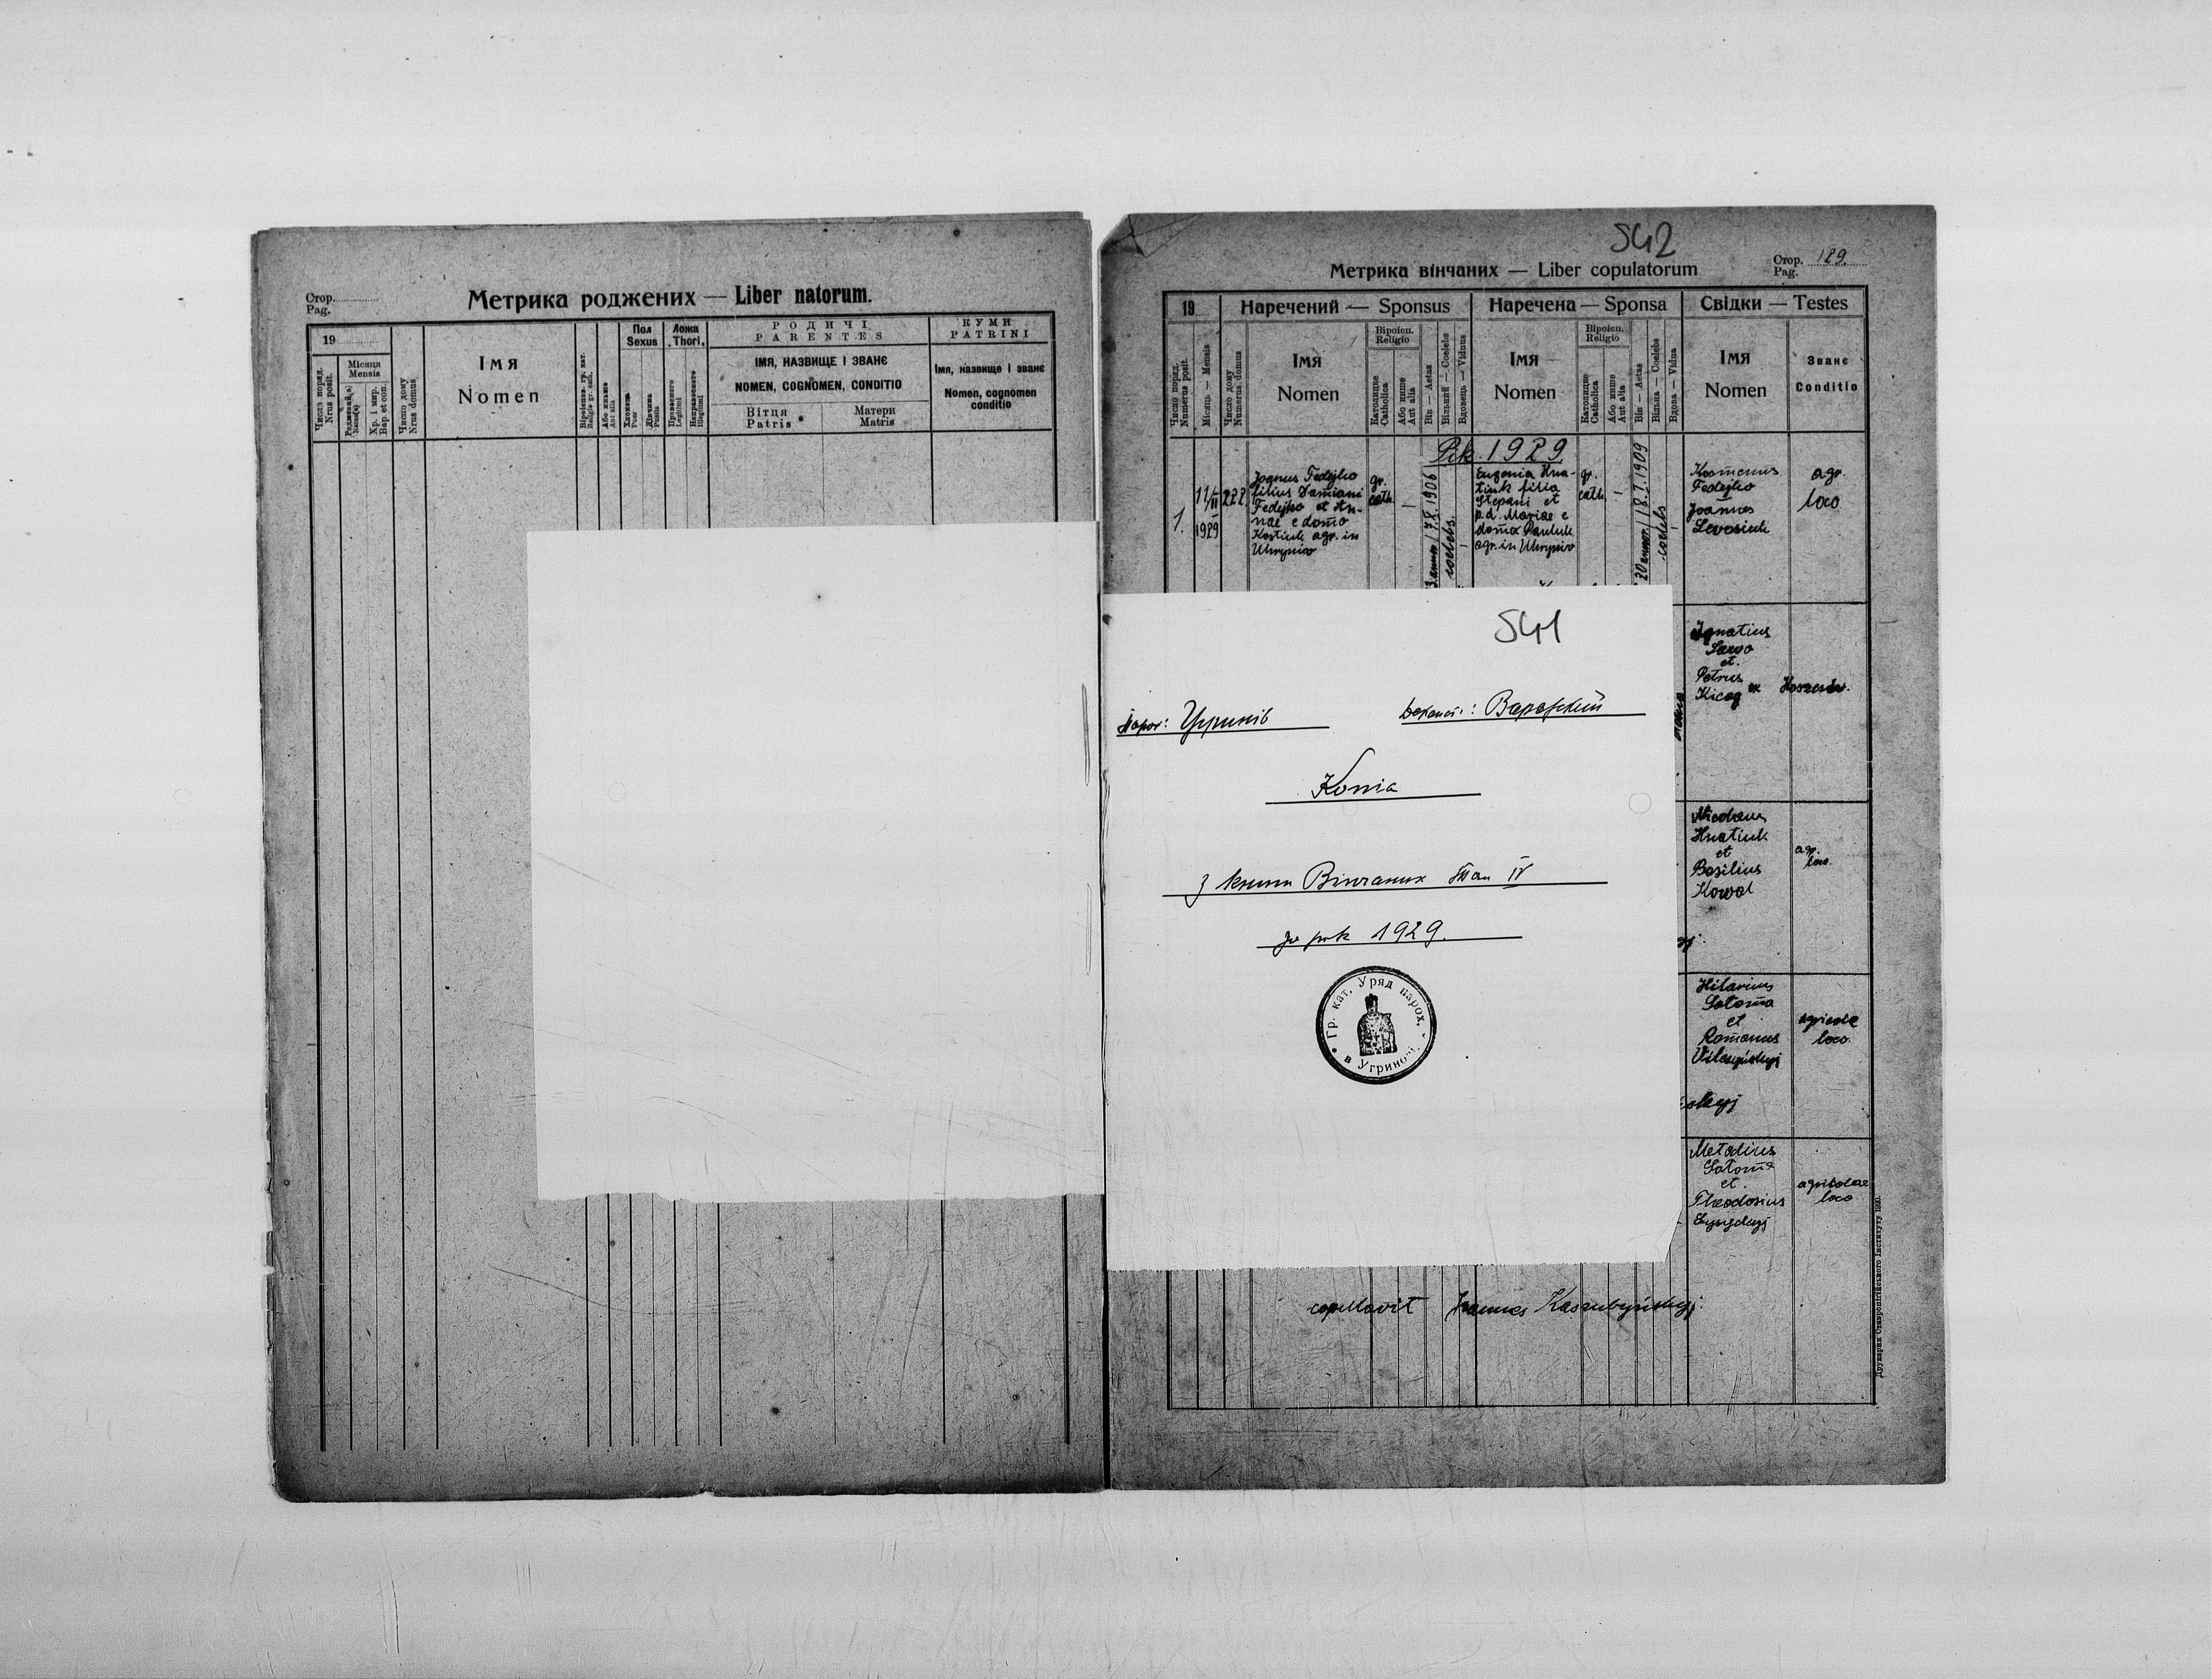 Стор.
Pag.
Метрика роджених — Liber natorum.
19
Число поряд.
Nrus posit.
Місяця
Mensis
Хр. і мир.
Bap. et con.
Число дому
Nrus domus
Імя
Nomen
Або иньше
Aut alia
Пол
Sexus
Хлопець
Puer
Дівчина
Puella
Ложа
Thori.
Правесного
Legitimi
Неправесного
Illegitimi
РОДИЧІ
PARENTES
ІМЯ, НАЗВИЩЕ І ЗВАНЄ
NOMEN, COGNOMEN, CONDITIO
Вітця
Patris
Матери
Matris
КУМИ
PATRINI
Імя, назвище і званє
Nomen, cognomen
conditio
542
Метрика вінчаних — Liber copulatorum
Стор.
Pag. 129.
19
Наречений — Sponsus
Наречена — Sponsa
Свідки — Testes
Число поряд.
Numerus posit.
Місяць — Mensis
Число дому
Numerus domus
Імя
Nomen
Віроісп.
Religio
Католицке
Catholica
Або инше
Aut alia
Вік — Aetas
Вільний — Coelebs
Вдовець — Viduus
Імя
Nomen
Віроісп.
Religio
Католицке
Catholica
Або инше
Aut alia
Вік — Aetas
Вільна — Coelebs
Вдова — Vidua
Імя
Nomen
Званє
Conditio
Рік 1929
1.
11/II
1929
222
Joannes Fedejko
filius Damiani
Fedejko et An-
nae e domo
Kostiuk agr. in
Uhryniw
gr.
cath.
7.X.1906
coelebs.
Eugenia Hna-
tiuk filia
Stepani et
p.d. Mariae e
domo Pauluk
agr. in Uhryniv
gr.
cath.
20 annor. 8.I.1909
coelebs
Fedejko
Joannes
Levosiuk
agr.
loco
Ignatius
et.
Petrus
Hnatiuk
et
Basilius
Kowal
agr.
loco.
Hilarius
Sotoma
et
Romanus
agricolae
loco.
Metodius
Sotoma
et.
Theodosius
agricolae
loco
541
Парох: Угринів
Деканат:
Копіа
з книги Вінчаних Том IV
за рік 1929.
Гр. кат. Уряд парох.
в Угринові
copulavit Joannes Kaszubyńskyj.
Друкарня Ставропігійського Інституту 1920.